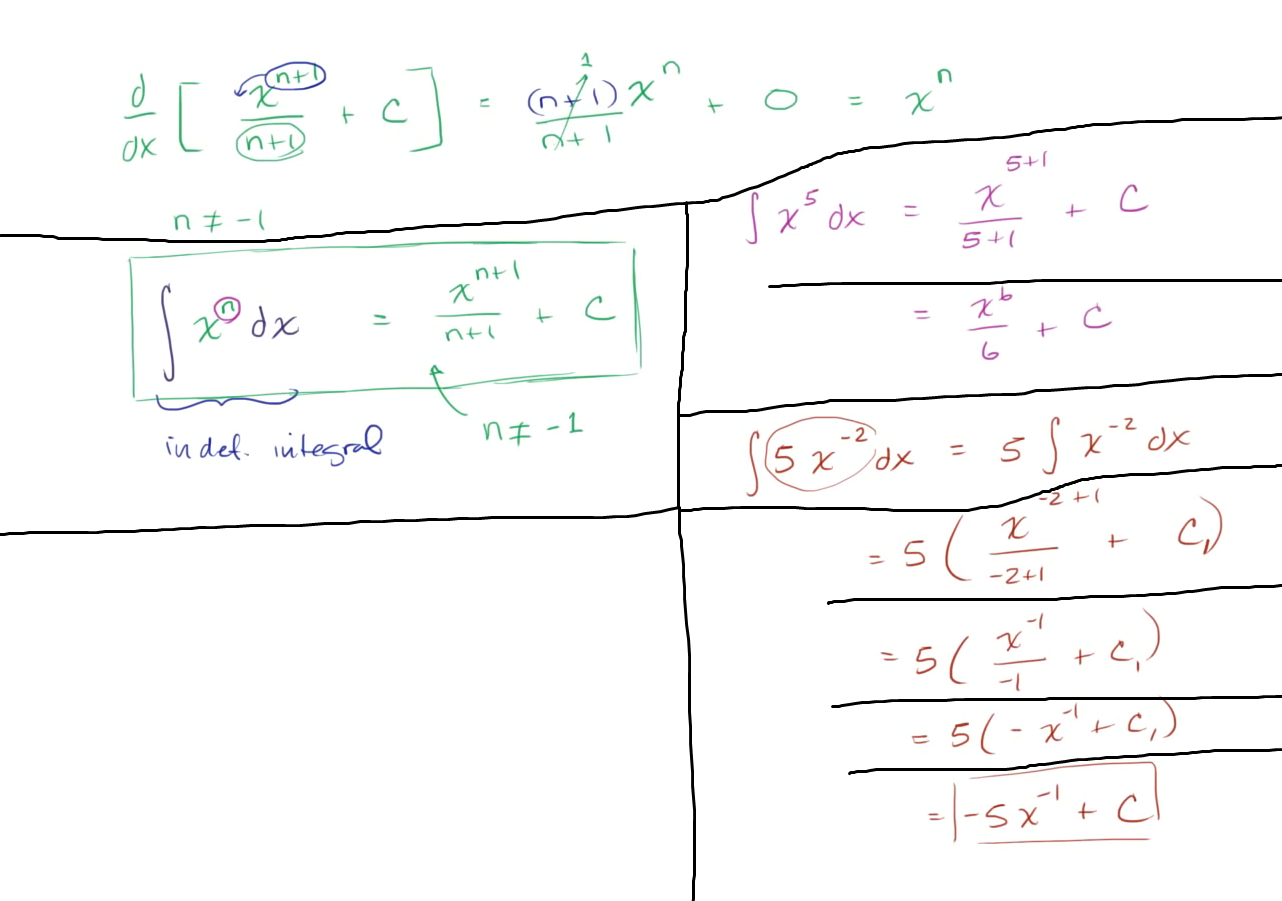 d/dx [ x^(n+1)/(n+1) + C ] = (n+1)x^n/(n+1) 1 + 0 = x^n
n ≠ -1
∫ x^n dx = x^(n+1)/(n+1) + C
n ≠ -1
indef. integral
∫ x^5 dx = x^(5+1)/(5+1) + C
= x^6/6 + C
∫ 5x^(-2) dx = 5 ∫ x^(-2) dx
= 5( x^(-2+1)/(-2+1) + C₁)
= 5( x^(-1)/(-1) + C₁)
= 5(-x^(-1) + C₁)
= -5x^(-1) + C